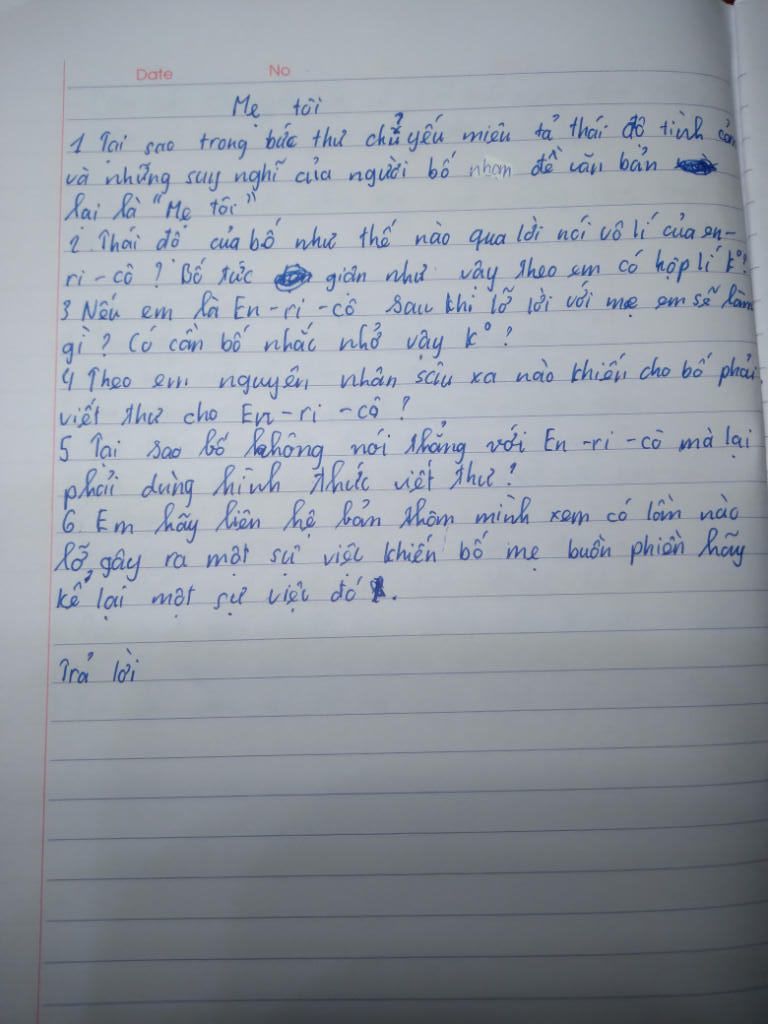 Date No
Mẹ tôi
1 Tại sao trong bức thư chủ yếu miêu tả thái độ tình cản
và những suy nghĩ của người bố nhan đề văn bản
lại là "Mẹ tôi"
2. Thái độ của bố như thế nào qua lời nói vô lí của en-
ri-cô? Bố tức giân như vây theo em có hộp lí k°?
3 Nếu em là En-ri-cô sau khi lỡ lời với mẹ em sẽ làm
gì? Có cần bố nhắc nhở vậy k°?
4 Theo em nguyên nhân sâu xa nào khiến cho bố phải
viết thư cho En-ri-cô?
5 Tại sao bố không nói thẳng với En-ri-cô mà lại
phải dùng hình thức viết thư?
6. Em hãy liên hệ bản thâm mình xem có lần nào
lỡ gây ra một sự việc khiến bố mẹ buồn phiền hãy
kể lại một sự việc đó.
Trả lời